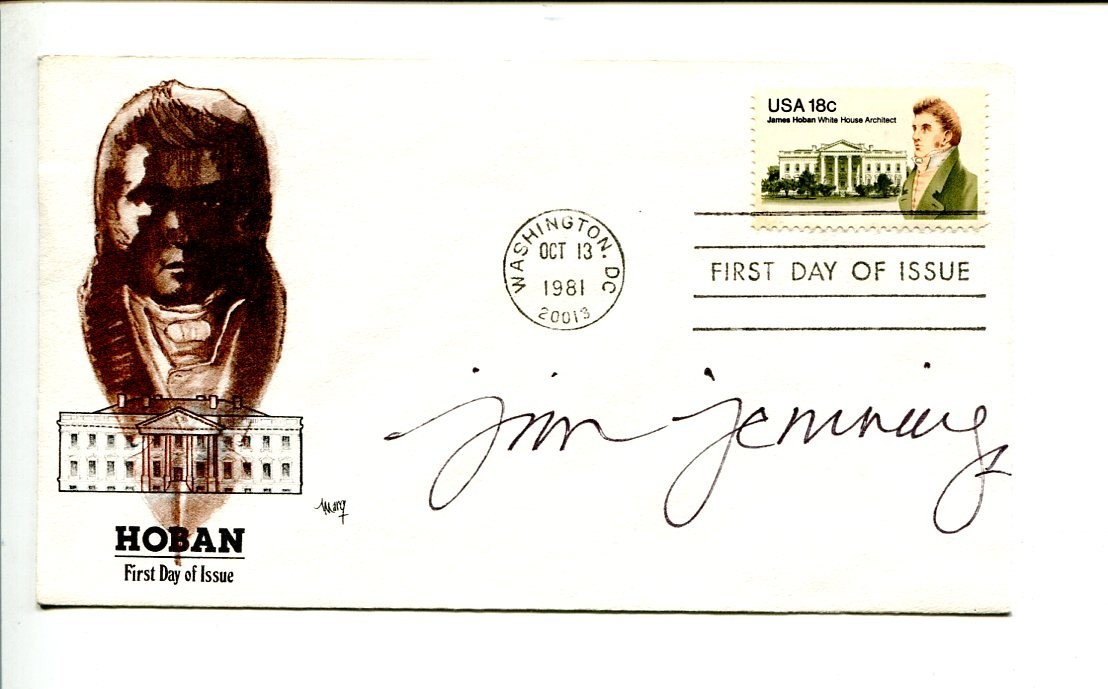 USA 18c
James Hoban White House Architect
WASHINGTON. DC
OCT 13
1981
20013
FIRST DAY OF ISSUE
Jim Jennings
Marg
HOBAN
First Day of Issue